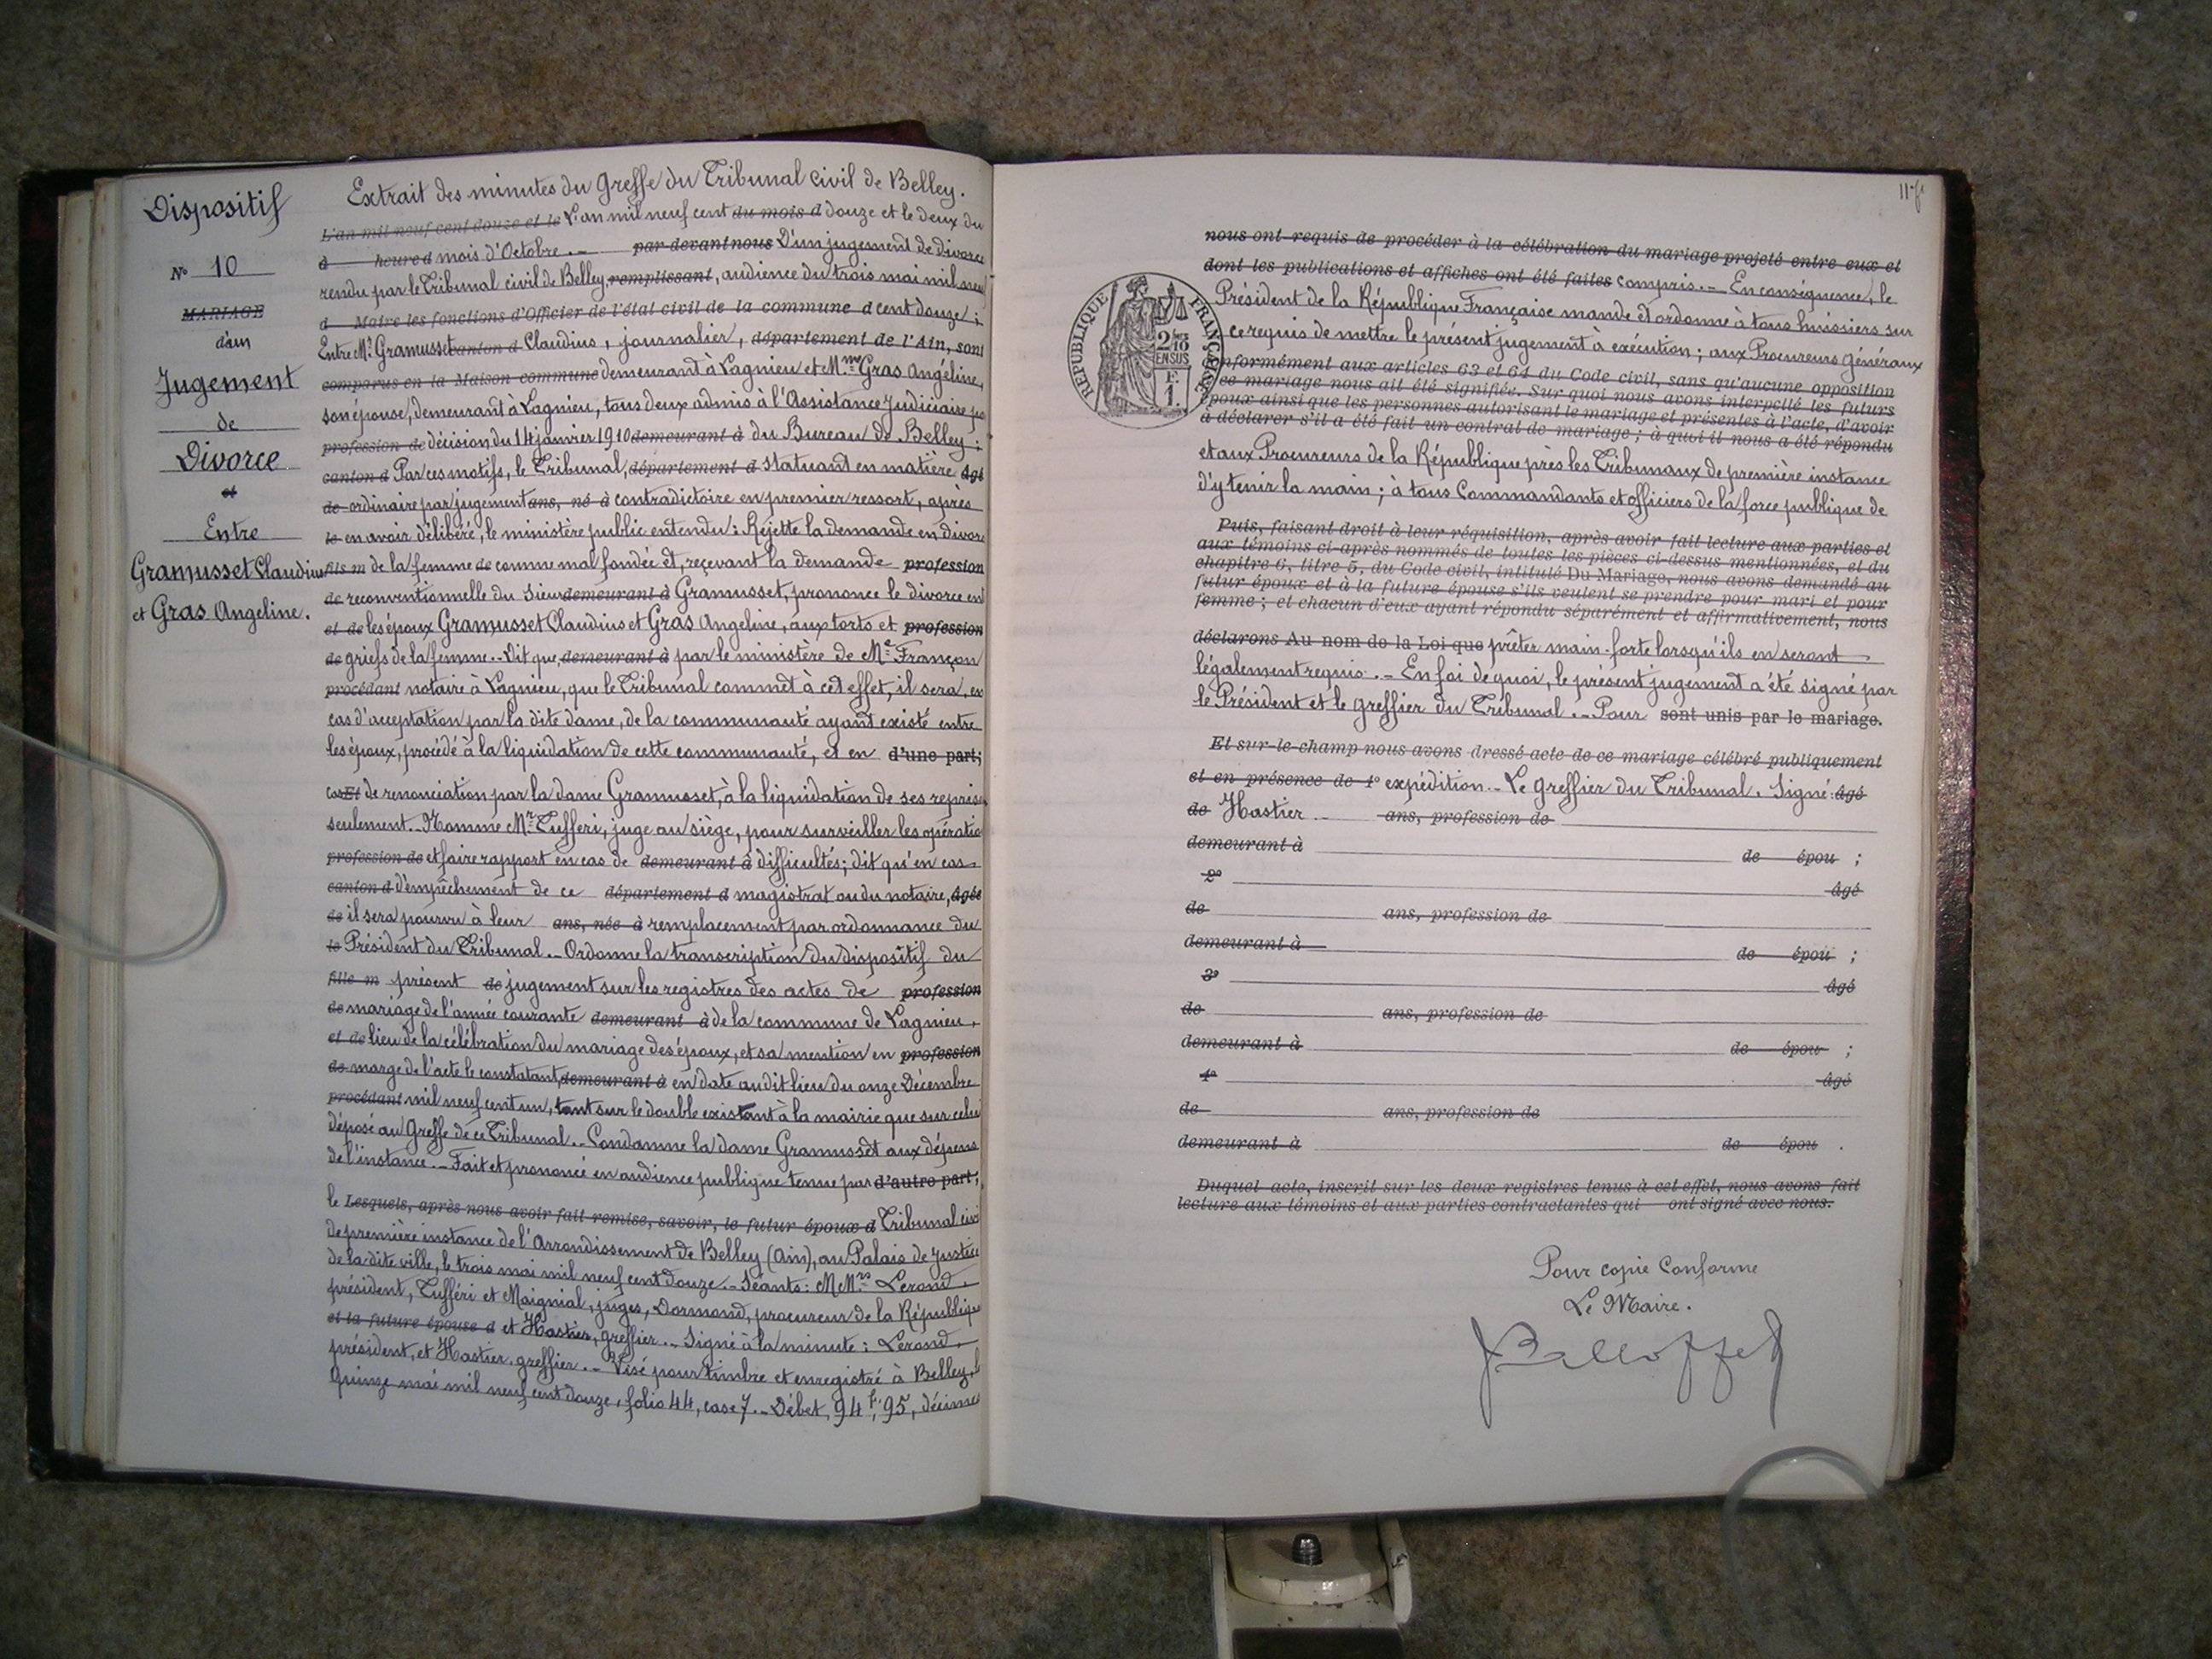 Dispositif
N° 10
MARIAGE
d'un
Jugement
de
Divorce
et
Entre
Gramusset Claudius
et Gras Angeline.
Extrait des minutes du Greffe du Tribunal civil de Belley.
L'an mil neuf cent douze et le L'an mil neuf cent du mois d douze et le deux du
à heure d mois d'Octobre . _ par-devant nous D'un jugement de divorce
rendu par le Tribunal civil de Belley, remplissant, audience du trois mai mil neuf
d Maire les fonctions d'Officier de l'état civil de la commune d cent douze ;
Entre Mr Gramusset canton d Claudius, journalier, département de l'Ain, sont
comparus en la Maison commune demeurant à Lagnieu et Mme Gras Angéline,
son épouse, demeurant à Lagnieu, tous deux admis à l'Assistance Judiciaire par
profession de décision du 14 janvier 1910 demeurant à du Bureau de Belley :
canton d Par ces motifs, le Tribunal, département d statuant en matière âgé
de ordinaire par jugement ans, né à contradictoire en premier ressort, après
le en avoir délibéré, le ministère public entendu : Rejette la demande en divorce
fils m de la femme de comme mal fondée et, recevant la demande profession
de reconventionnelle du Sieur demeurant à Gramusset, prononce le divorce en
et de les époux Gramusset Claudius et Gras Angeline, aux torts et profession
de griefs de la femme. _ Dit que, demeurant à par le ministère de Me Françon
procédant notaire à Lagnieu, que le Tribunal commet à cet effet, il sera, en
cas d'acceptation par la dite dame, de la communauté ayant existé entre
les époux, procédé à la liquidation de cette communauté, et en d'une part;
cas Et de renonciation par la dame Gramusset, à la liquidation de ses reprises
seulement. _ Nomme Mr Tufferi, juge au siège, pour surveiller les opératio
profession de et faire rapport en cas de demeurant à difficultés ; dit qu'en cas
canton d d'empêchement de ce département d magistrat ou du notaire, âgée
de il sera pourvu à leur ans, née à remplacement par ordonnance du
le Président du Tribunal. _ Ordonne la transcription du dispositif du
fille m présent de jugement sur les registres des actes de profession
de mariage de l'année courante demeurant à de la commune de Lagnieu,
et de lieu de la célébration du mariage des époux, et sa mention en profession
de marge de l'acte le constatant, demeurant à en date audit lieu du onze Décembre
procédant mil neuf cent un, tant sur le double existant à la mairie que sur celui
déposé au Greffe de ce Tribunal. _ Condamne la dame Gramusset aux dépens
de l'instance. _ Fait et prononcé en audience publique tenue par d'autre part;
le Lesquels, après nous avoir fait remise, savoir, le futur époux d Tribunal civi
de première instance de l'Arrondissement de Belley (Ain), au Palais de Justice
de la dite ville, le trois mai mil neuf cent douze. _ Séants : MMrs Lerond,
président, Tufféri et Maignial, juges, Dormand, procureur de la République
et la future épouse d et Hastier, greffier. _ Signé à la minute : Lerond,
président, et Hastier, greffier. _ Visé pour timbre et enregistré à Belley, l
Quinze mai mil neuf cent douze, folio 44, case 7. _ Débet, 94 f, 95, décimes
11
nous ont requis de procéder à la célébration du mariage projeté entre eux et
dont les publications et affiches ont été faites compris. _ En conséquence, le
Président de la République Française mande et ordonne à tous huissiers sur
ce requis de mettre le présent jugement à exécution ; aux Procureurs généraux
RÉPUBLIQUE FRANÇAISE
2 10es
EN SUS
F.
1.
nformément aux articles 63 et 64 du Code civil, sans qu'aucune opposition
ce mariage nous ait été signifiée. Sur quoi nous avons interpellé les futurs
époux ainsi que les personnes autorisant le mariage et présentes à l'acte, d'avoir
à déclarer s'il a été fait un contrat de mariage ; à quoi il nous a été répondu
et aux Procureurs de la République près les Tribunaux de première instance
d'y tenir la main ; à tous Commandants et officiers de la force publique de
Puis, faisant droit à leur réquisition, après avoir fait lecture aux parties et
aux témoins ci-après nommés de toutes les pièces ci-dessus mentionnées, et du
chapitre 6, titre 5, du Code civil, intitulé Du Mariage, nous avons demandé au
futur époux et à la future épouse s'ils veulent se prendre pour mari et pour
femme ; et chacun d'eux ayant répondu séparément et affirmativement, nous
déclarons Au nom de la Loi que prêter main-forte lorsqu'ils en seront
légalement requis. _ En foi de quoi, le présent jugement a été signé par
le Président et le greffier du Tribunal. _ Pour sont unis par le mariage.
Et sur-le-champ nous avons dressé acte de ce mariage célébré publiquement
et en présence de 1° expédition. _ Le Greffier du Tribunal. Signé : âgé
de Hastier _ ans, profession de
demeurant à de épou ;
2° âgé
de ans, profession de
demeurant à de épou ;
3° âgé
de ans, profession de
demeurant à de épou ;
4° âgé
de ans, profession de
demeurant à de épou .
Duquel acte, inscrit sur les deux registres tenus à cet effet, nous avons fait
lecture aux témoins et aux parties contractantes qui ont signé avec nous.
Pour copie Conforme
Le Maire.